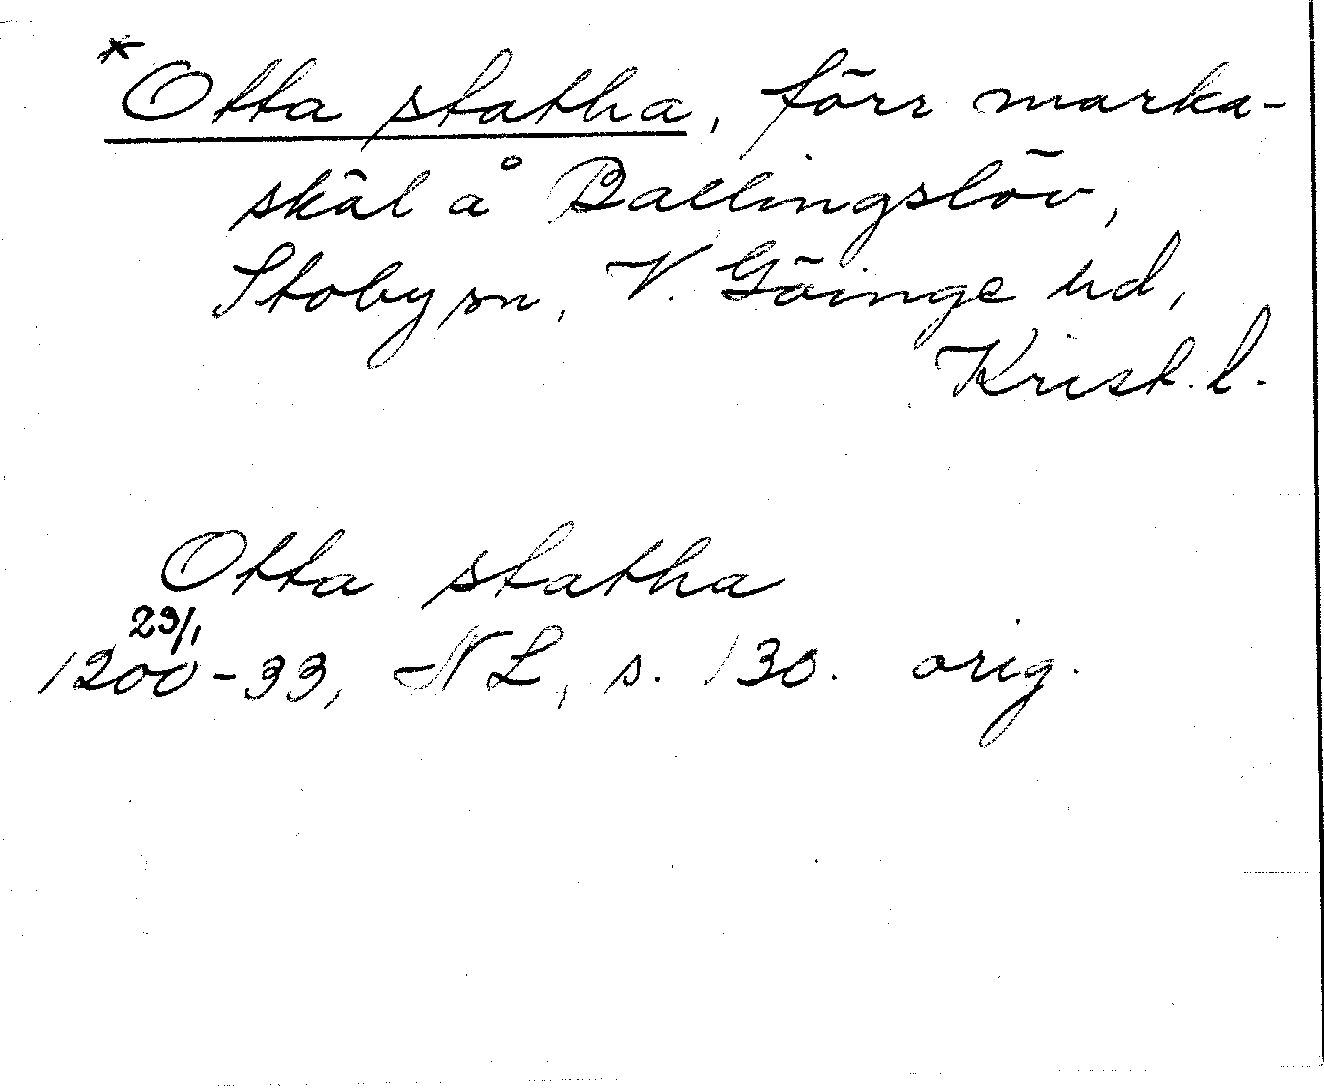 *Otta statha, förr marka-
skäl å Ballingslöv,
Stoby sn, V. Göinge hd,
Krist. l.
Otta statha
29/1
1200-33, NL, s. 130. orig.